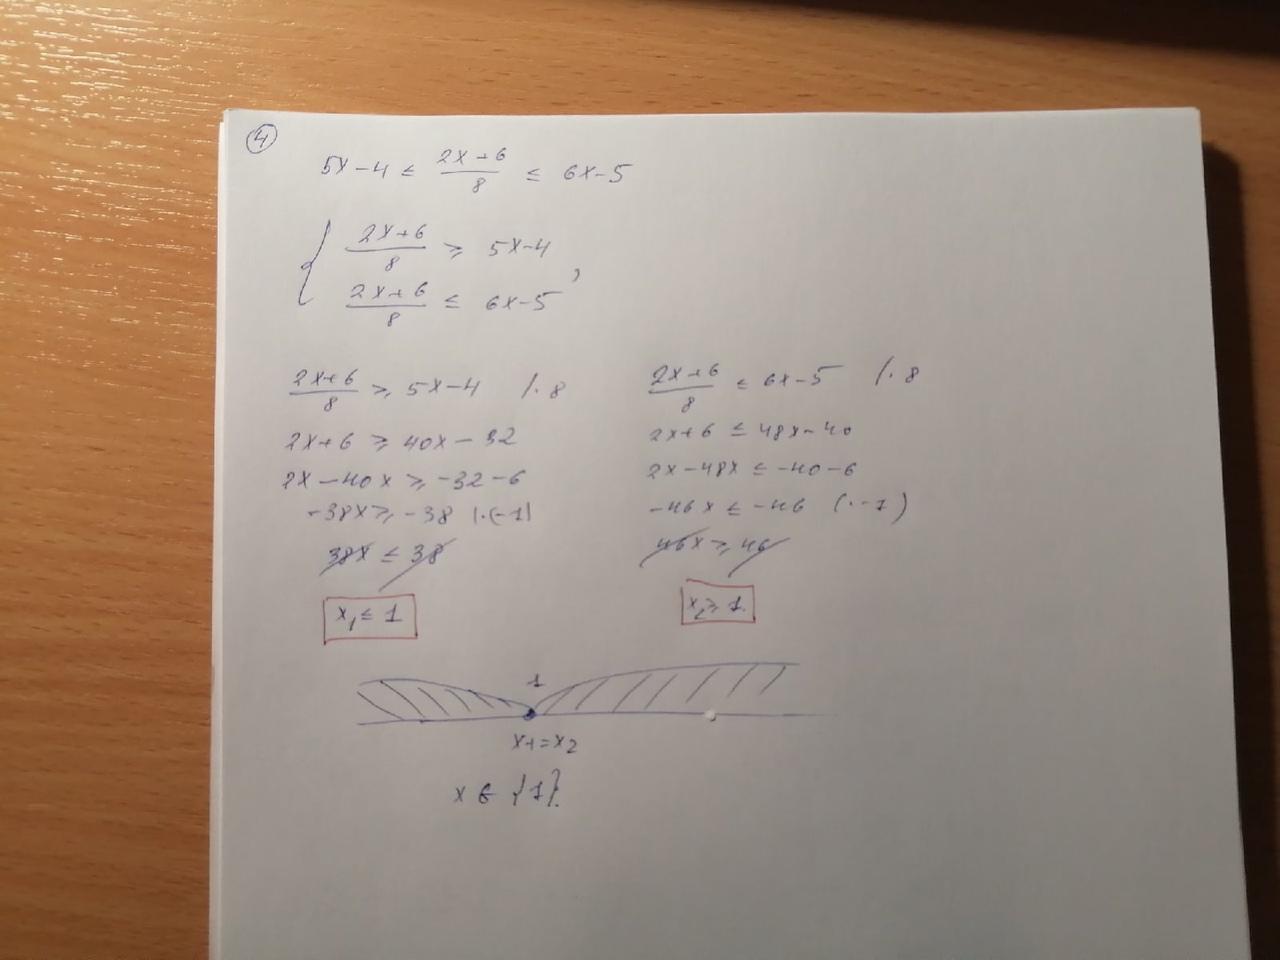 4
5x-4 ≤ (2x+6)/8 ≤ 6x-5
{ (2x+6)/8 ≥ 5x-4
(2x+6)/8 ≤ 6x-5 ,
(2x+6)/8 ≥ 5x-4 /·8
2x+6 ≥ 40x-32
2x-40x ≥ -32-6
-38x ≥ -38 |·(-1)
38x ≤ 38
x₁ ≤ 1
(2x+6)/8 ≤ 6x-5 /·8
2x+6 ≤ 48x-40
2x-48x ≤ -40-6
-46x ≤ -46 (·-1)
46x ≥ 46
x₂ ≥ 1.
1
x1=x2
x ∈ {1}.